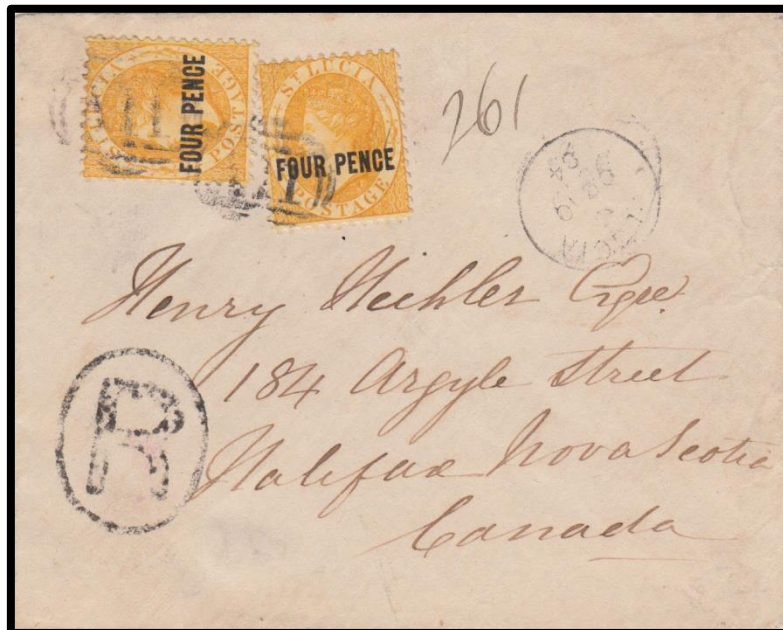 LUCIA
FOUR PENCE
POSTAGE
ST LUCIA
FOUR PENCE
POSTAGE
261
LUCIA
84
Henry Hechler Esqre
184 Argyle Street
Halifax Nova Scotia
Canada
R